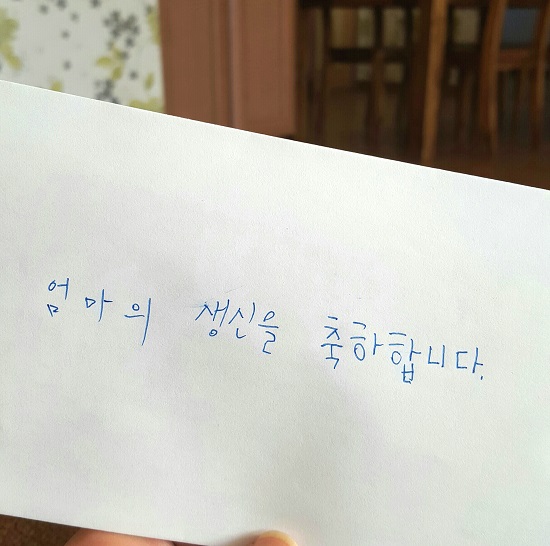 엄마의 생신을 축하합니다.